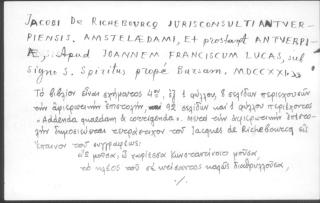 JACOBI DE RICHEBOURCQ JURISCONSULTI ANTVER-
PIENSIS. AMSTELÆDAMI, Et prostant ANTVERPI
Æ, Apud JOANNEM FRANCISCUM LUCAS, sub
signo S. Spiritus propè Bursam. MDCCXXI.
Τὸ βιβλίον εἶναι σχήματος 4ου, ἐξ 1 φύλλου 8 σελίδων περιεχουσῶν
τὴν ἀφιερωτικὴν ἐπιστολήν, 92 σελίδων καὶ 1 φύλλου περιέχοντος
«Addenda quaedam & corrigenda». Μετὰ τὴν ἀφιερωτικὴν ἐπιστο-
λὴν δημοσιεύεται τετράστιχον τοῦ Jacques de Richebourcq εἰς
ἔπαινον τοῦ συγγραφέως:
μοῦσα, ὦ χαρίεσσα Κωνσταντίνοιο μοῦσα
τὸ κλέος τοῦ σὲ
./.